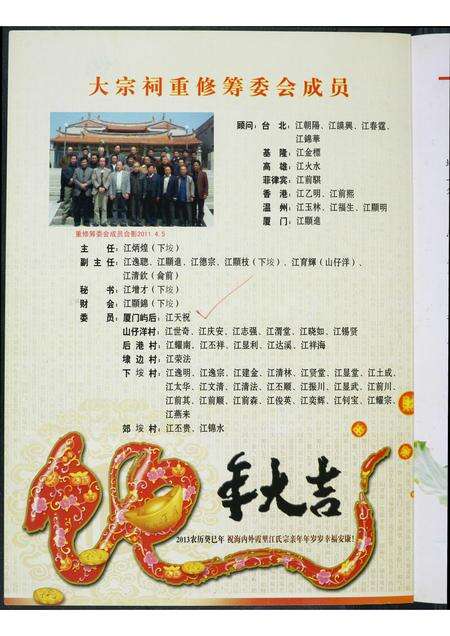 大宗祠重修筹委会成员
顾问：台 北：江朝陽、江謨興、江春霆、
江錦華
基 隆：江金標
高 雄：江火水
菲律宾：江前騏
香 港：江乙明、江前熙
温 州：江玉林、江福生、江顯明
厦 门：江顯進
重修筹委会成员合影2011.4.5
主 任：江炳煌（下垵）
副主任：江逸聰、江顯進、江德宗、江顯枝（下垵）、江育輝（山仔洋）、
江清欽（侖前）
秘 书：江增才（下垵）
财 会：江顯錦（下垵）
委 员：厦门屿后：江天祝
山仔洋村：江世奇、江庆安、江志强、江渭堂、江晓如、江锡贤
后港村：江耀南、江丕祥、江昱利、江达溪、江祥海
埭边村：江荣法
下垵村：江逸明、江逸宗、江建金、江清林、江贤堂、江显堂、江土成、
江太华、江文清、江清法、江丕顺、江振川、江显武、江前川、
江前其、江前顺、江前森、江俊英、江奕辉、江钊宝、江耀宗、
江燕来
郊垵村：江丕贵、江锦水
蛇年大吉
2013农历癸巳年 祝海内外霞里江氏宗亲年年岁岁幸福安康！